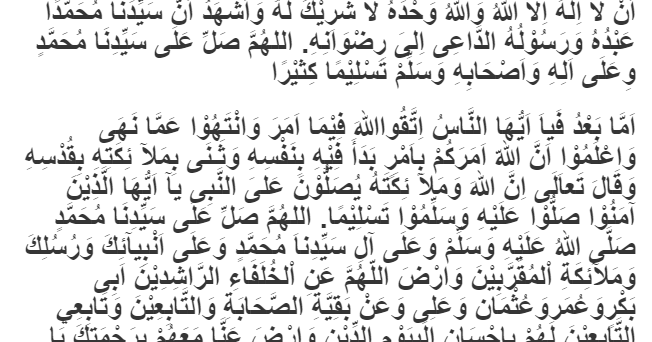 اَنْ لاَ اِلَهَ اِلاَّ اللهُ وَاللهُ وَحْدَهُ لاَ شَرِيْكَ لَهُ وَاَشْهَدُ اَنَّ سَيِّدَنَا مُحَمَّدًا
عَبْدُهُ وَرَسُوْلُهُ الدَّاعِى اِلىَ رِضْوَانِهِ. اللهُمَّ صَلِّ عَلَى سَيِّدِنَا مُحَمَّدٍ
وِعَلَى اَلِهِ وَاَصْحَابِهِ وَسَلِّمْ تَسْلِيْمًا كِثيْرًا
اَمَّا بَعْدُ فَياَ اَيُّهَا النَّاسُ اِتَّقُوااللهَ فِيْمَا اَمَرَ وَانْتَهُوْا عَمَّا نَهَى
وَاعْلَمُوْا اَنَّ اللهّ اَمَرَكُمْ بِاَمْرٍ بَدَأَ فِيْهِ بِنَفْسِهِ وَثَـنَى بِمَلآ ئِكَتِهِ بِقُدْسِهِ
وَقَالَ تَعاَلَى اِنَّ اللهَ وَمَلآ ئِكَتَهُ يُصَلُّوْنَ عَلىَ النَّبِى يآ اَيُّهَا الَّذِيْنَ
آمَنُوْا صَلُّوْا عَلَيْهِ وَسَلِّمُوْا تَسْلِيْمًا. اللهُمَّ صَلِّ عَلَى سَيِّدِنَا مُحَمَّدٍ
صَلَّى اللهُ عَلَيْهِ وَسَلِّمْ وَعَلَى آلِ سَيِّدِناَ مُحَمَّدٍ وَعَلَى اَنْبِيآئِكَ وَرُسُلِكَ
وَمَلآئِكَةِ اْلمُقَرَّبِيْنَ وَارْضَ اللّهُمَّ عَنِ اْلخُلَفَاءِ الرَّاشِدِيْنَ اَبِى
بَكْرٍوَعُمَروَعُثْمَان وَعَلِى وَعَنْ بَقِيَّةِ الصَّحَابَةِ وَالتَّابِعِيْنَ وَتَابِعِي
التَّابِعِيْنَ لَهُمْ بِاِحْسَانٍ اِلَىيَوْمِ الدِّيْنِ وَارْضَ عَنَّا مَعَهُمْ بِرَحْمَتِكَ يَا